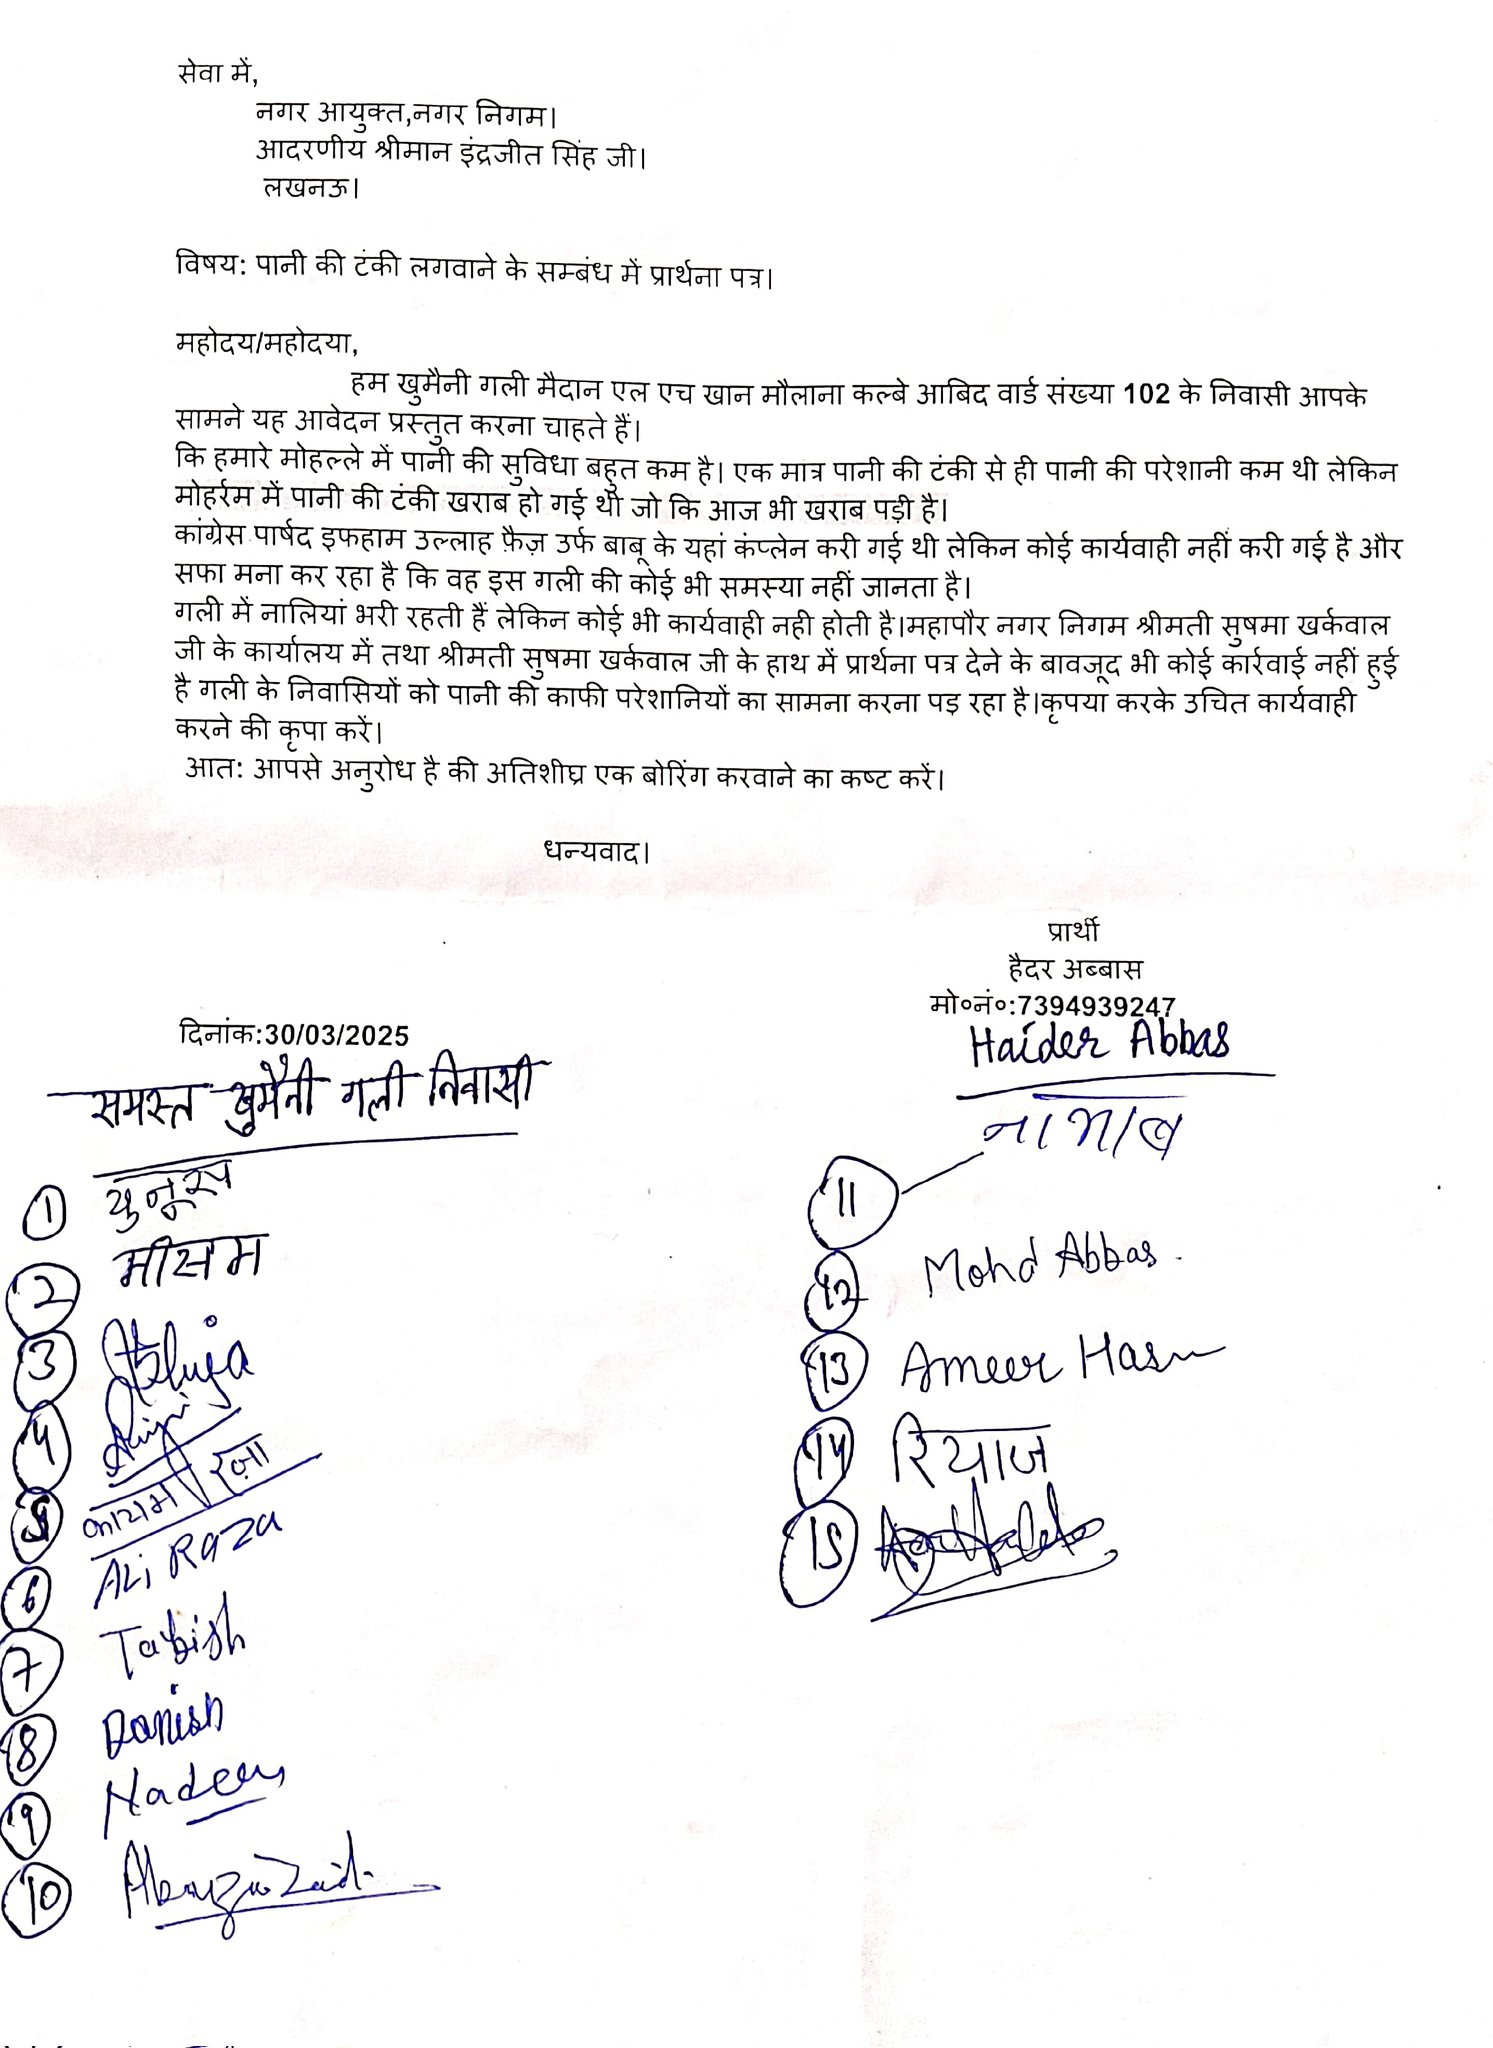 सेवा में,
नगर आयुक्त,नगर निगम।
आदरणीय श्रीमान इंद्रजीत सिंह जी।
लखनऊ।
विषय: पानी की टंकी लगवाने के सम्बंध में प्रार्थना पत्र।
महोदय/महोदया,
हम खुमैनी गली मैदान एल एच खान मौलाना कल्बे आबिद वार्ड संख्या 102 के निवासी आपके
सामने यह आवेदन प्रस्तुत करना चाहते हैं।
कि हमारे मोहल्ले में पानी की सुविधा बहुत कम है। एक मात्र पानी की टंकी से ही पानी की परेशानी कम थी लेकिन
मोहर्रम में पानी की टंकी खराब हो गई थी जो कि आज भी खराब पड़ी है।
कांग्रेस पार्षद इफहाम उल्लाह फ़ैज़ उर्फ बाबू के यहां कंप्लेन करी गई थी लेकिन कोई कार्यवाही नहीं करी गई है और
सफा मना कर रहा है कि वह इस गली की कोई भी समस्या नहीं जानता है।
गली में नालियां भरी रहती हैं लेकिन कोई भी कार्यवाही नही होती है।महापौर नगर निगम श्रीमती सुषमा खर्कवाल
जी के कार्यालय में तथा श्रीमती सुषमा खर्कवाल जी के हाथ में प्रार्थना पत्र देने के बावजूद भी कोई कार्रवाई नहीं हुई
है गली के निवासियों को पानी की काफी परेशानियों का सामना करना पड़ रहा है।कृपया करके उचित कार्यवाही
करने की कृपा करें।
आत: आपसे अनुरोध है की अतिशीघ्र एक बोरिंग करवाने का कष्ट करें।
धन्यवाद।
प्रार्थी
हैदर अब्बास
मो०नं०:7394939247
Haider Abbas
दिनांक:30/03/2025
समस्त खुमैनी गली निवासी
1 युनूस
2 मीसम
3
4
5 कायम रज़ा
6 ALi RAZA
7 Tabish
8 Danish
9 Nadeem
10 Zaid
11
12 Mohd Abbas.
13 Ameer Hasn
14 रियाज
15